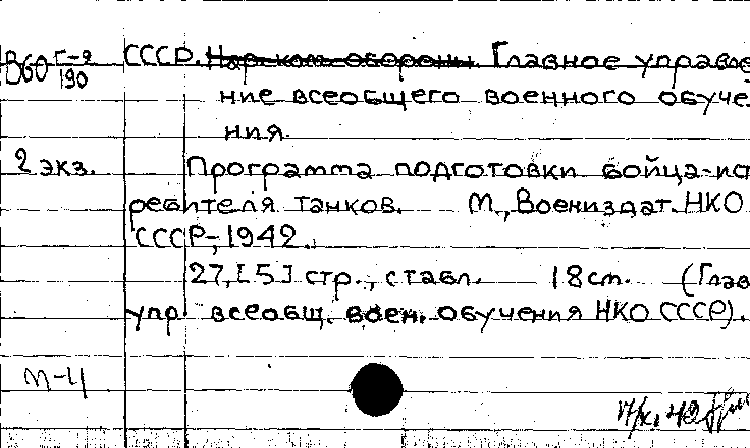 В60 Г-2
190
СССР. Нар. ком. обороны. Главное управле
ние всеобщего военного обуче
ния.
2 экз. Программа подготовки бойца-ист
ребителя танков. М., Воениздат. НКО
СССР, 1942.
27, [5] стр., с табл. 18 cm. (Глав
упр. всеобщ. воен. обучения НКО СССР).
М-4